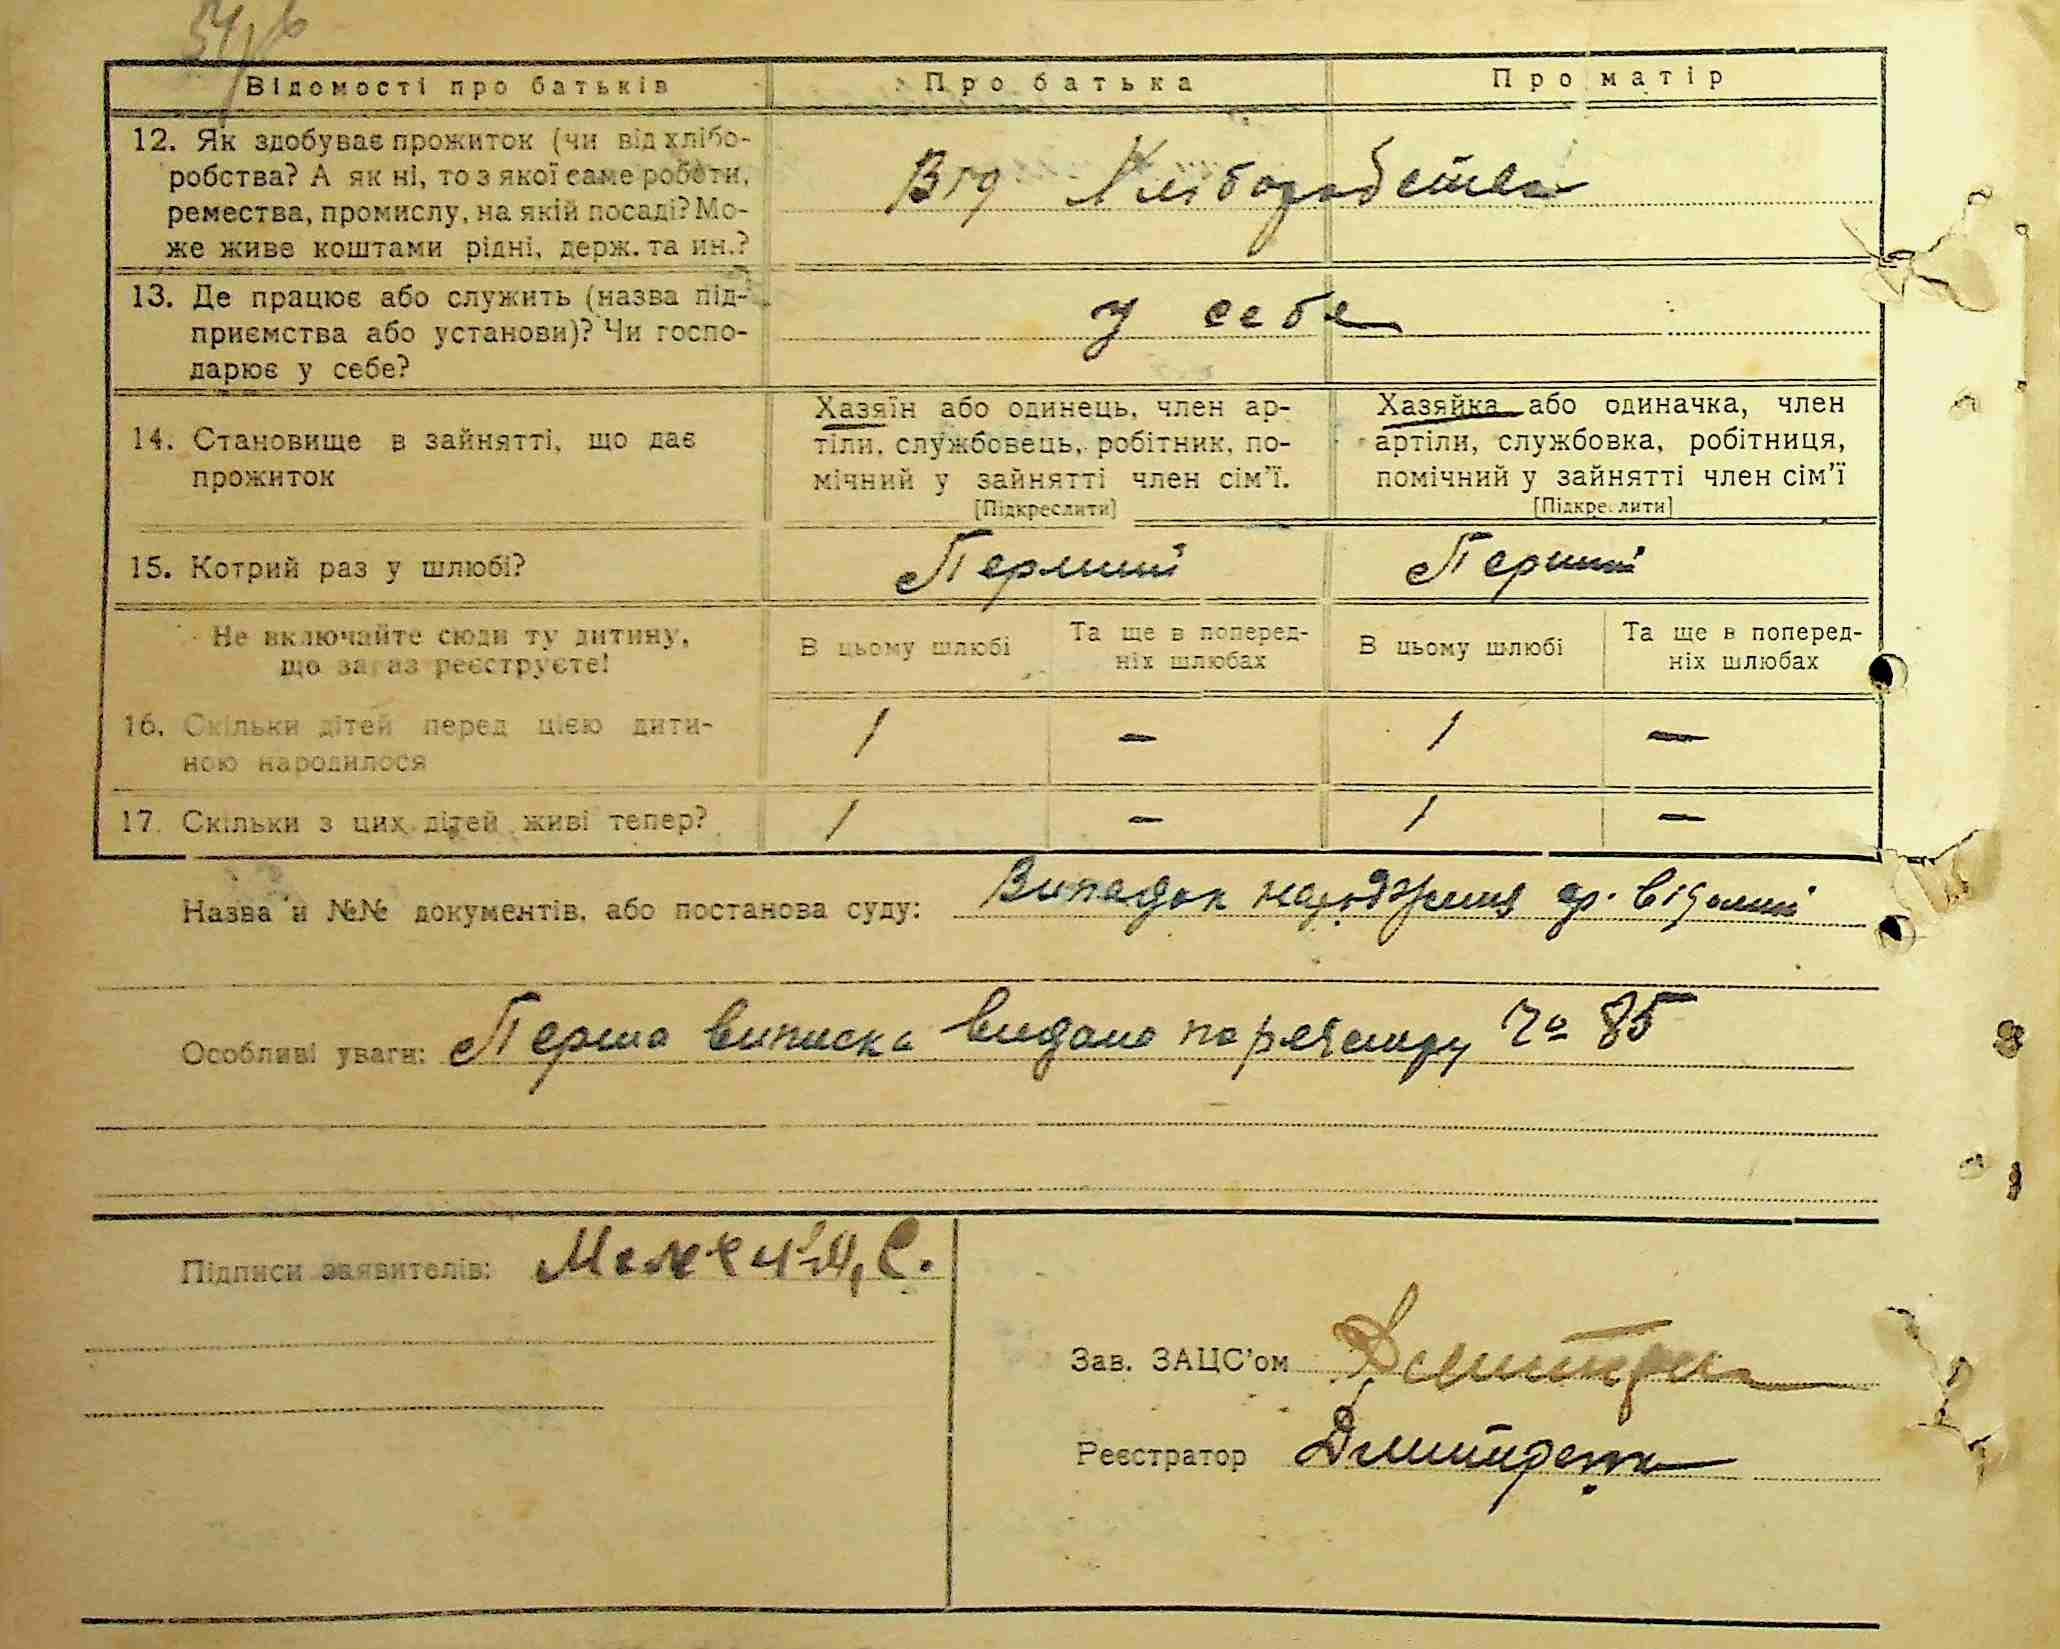 Відомості про батьків
Про батька
Про матір
12. Як здобуває прожиток (чи від хлібо-
робства? А як ні, то з якої саме роботи,
ремества, промислу, на якій посаді? Мо-
же живе коштами рідні, держ. та ин.?
Від Хліборобства
13. Де працює або служить (назва під-
приємства або установи)? Чи госпо-
дарює у себе?
у себе
14. Становище в зайнятті, що дає
прожиток
Хазяїн або одинець, член ар-
тіли, службовець, робітник, по-
мічний у зайнятті член сім'ї.
[Підкреслити]
Хазяйка або одиначка, член
артіли, службовка, робітниця,
помічний у зайнятті член сім'ї
[Підкреслити]
15. Котрий раз у шлюбі?
Перший
Перший
Не включайте сюди ту дитину,
що зараз реєструєте!
В цьому шлюбі
Та ще в поперед-
ніх шлюбах
В цьому шлюбі
Та ще в поперед-
ніх шлюбах
16. Скільки дітей перед цією дити-
ною народилося
1 — 1 —
17. Скільки з цих дітей живі тепер?
1 — 1 —
Назва й №№ документів, або постанова суду: Випадок народження відомий
Особливі уваги: Перша виписка видана по реєстру 85
Підписи заявителів:
Зав. ЗАЦС'ом
Реєстратор